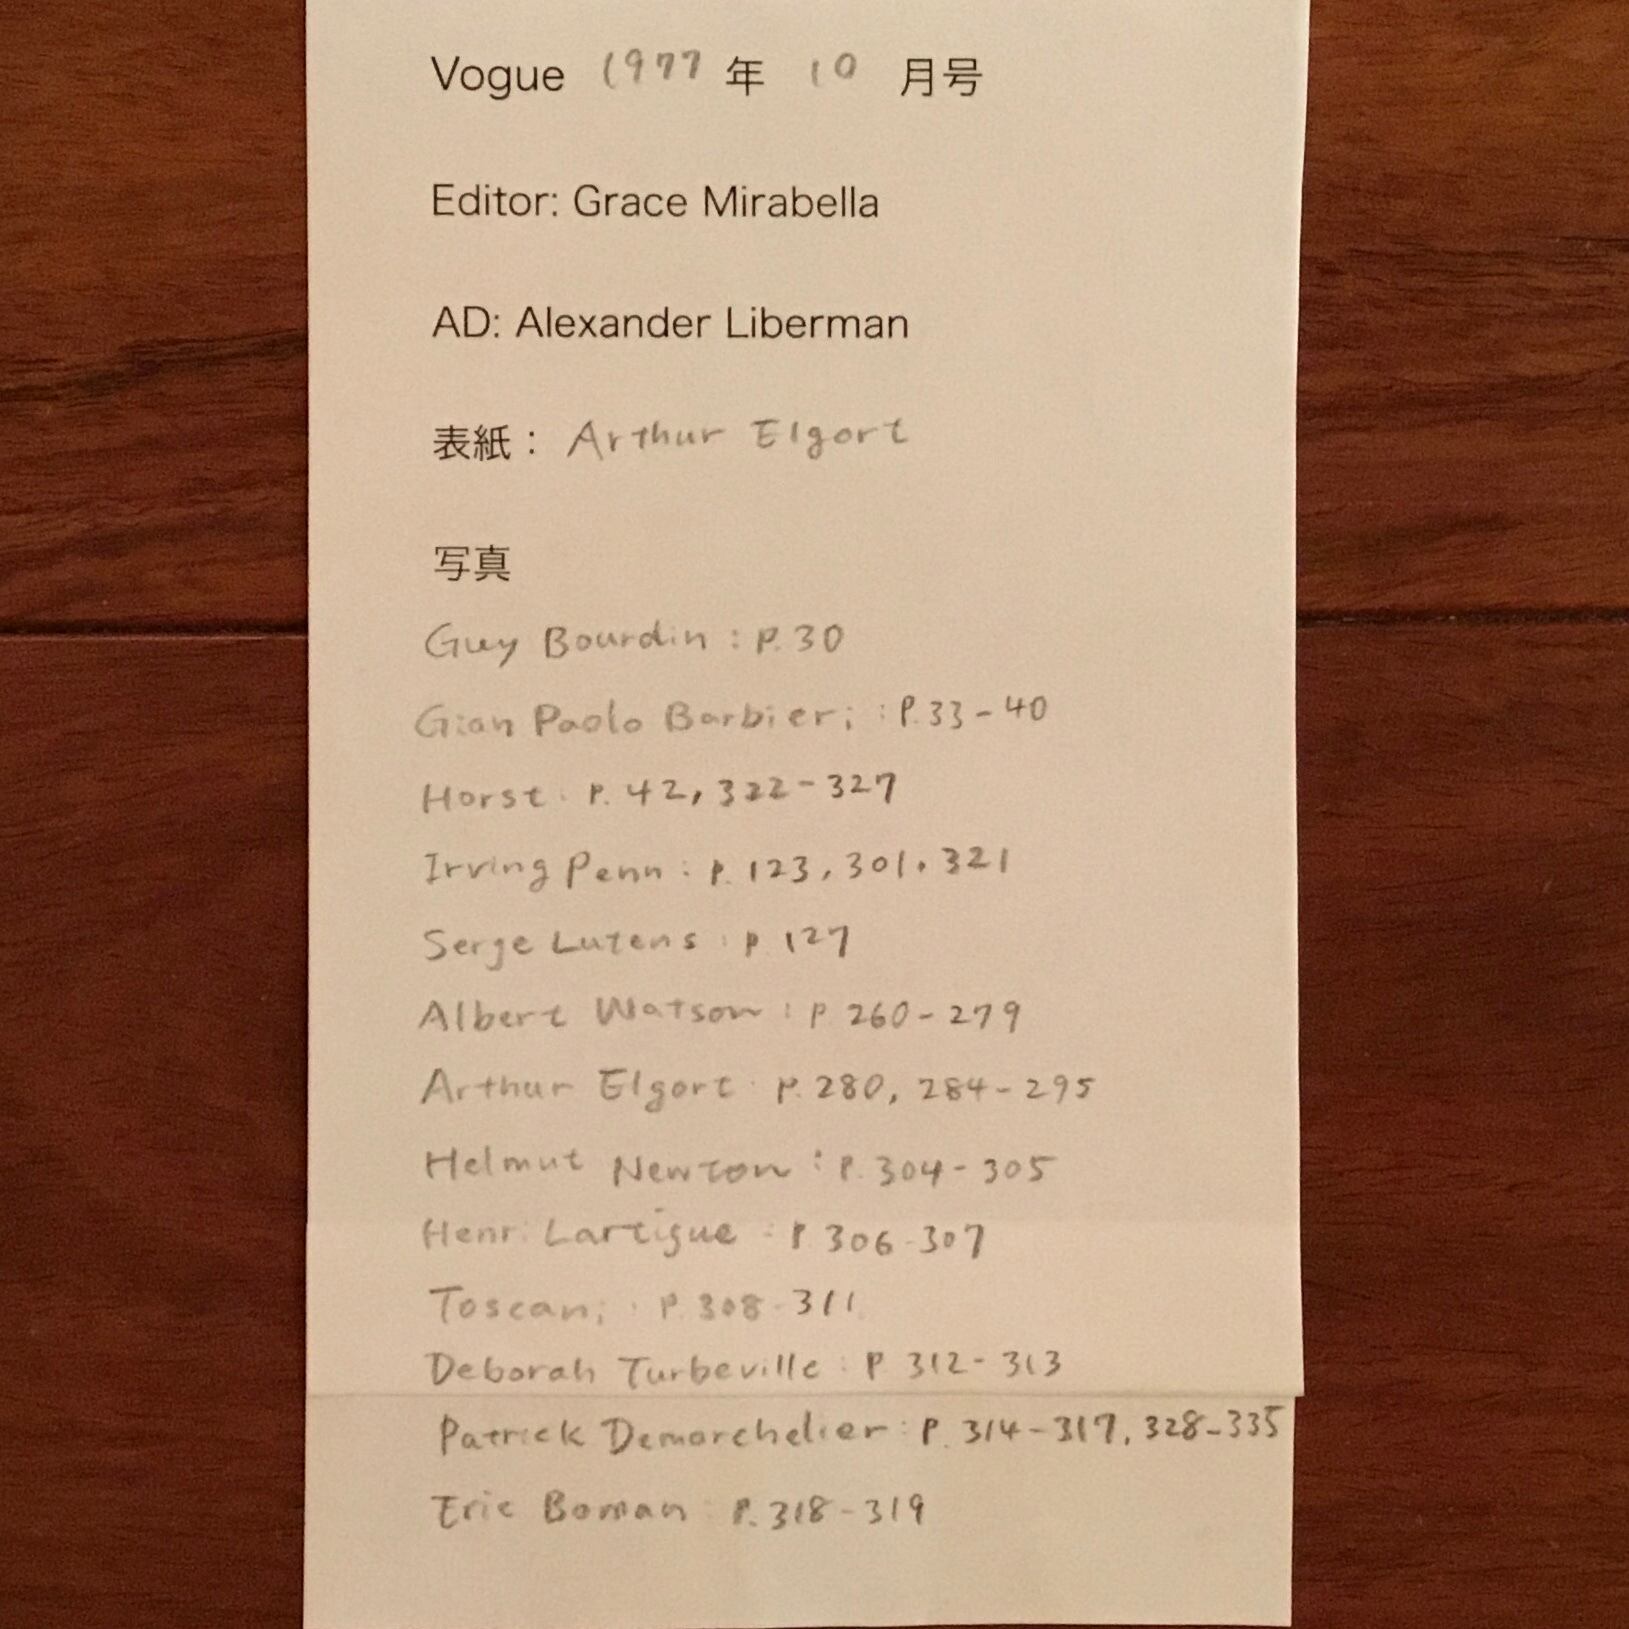 Vogue 1977 年 10 月号
Editor: Grace Mirabella
AD: Alexander Liberman
表紙： Arthur Elgort
写真
Guy Bourdin : P.30
Gian Paolo Barbieri : P.33-40
Horst : P. 42, 322-327
Irving Penn : P. 123, 301, 321
Serge Lutens : P 127
Albert Watson : P 260-279
Arthur Elgort : P. 280, 284-295
Helmut Newton : P. 304-305
Henri Lartigue : P 306-307
Toscani : P. 308-311
Deborah Turbeville : P 312-313
Patrick Demarchelier : P. 314-317, 328-335
Eric Boman : P. 318-319